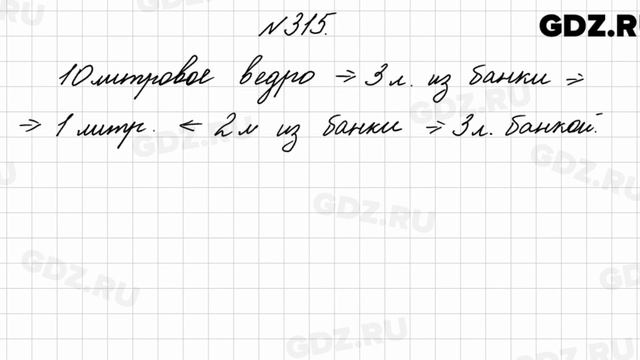 GDZ.RU
№315.
10литровое ведро ⇒ 3л. из банки ⇒
⇒ 1 литр. ← 2м из банки ⇒ 3л. банкой.
GDZ.RU
GDZ.RU
GDZ.RU
GDZ.RU
GDZ.RU
GDZ.RU
GDZ.RU